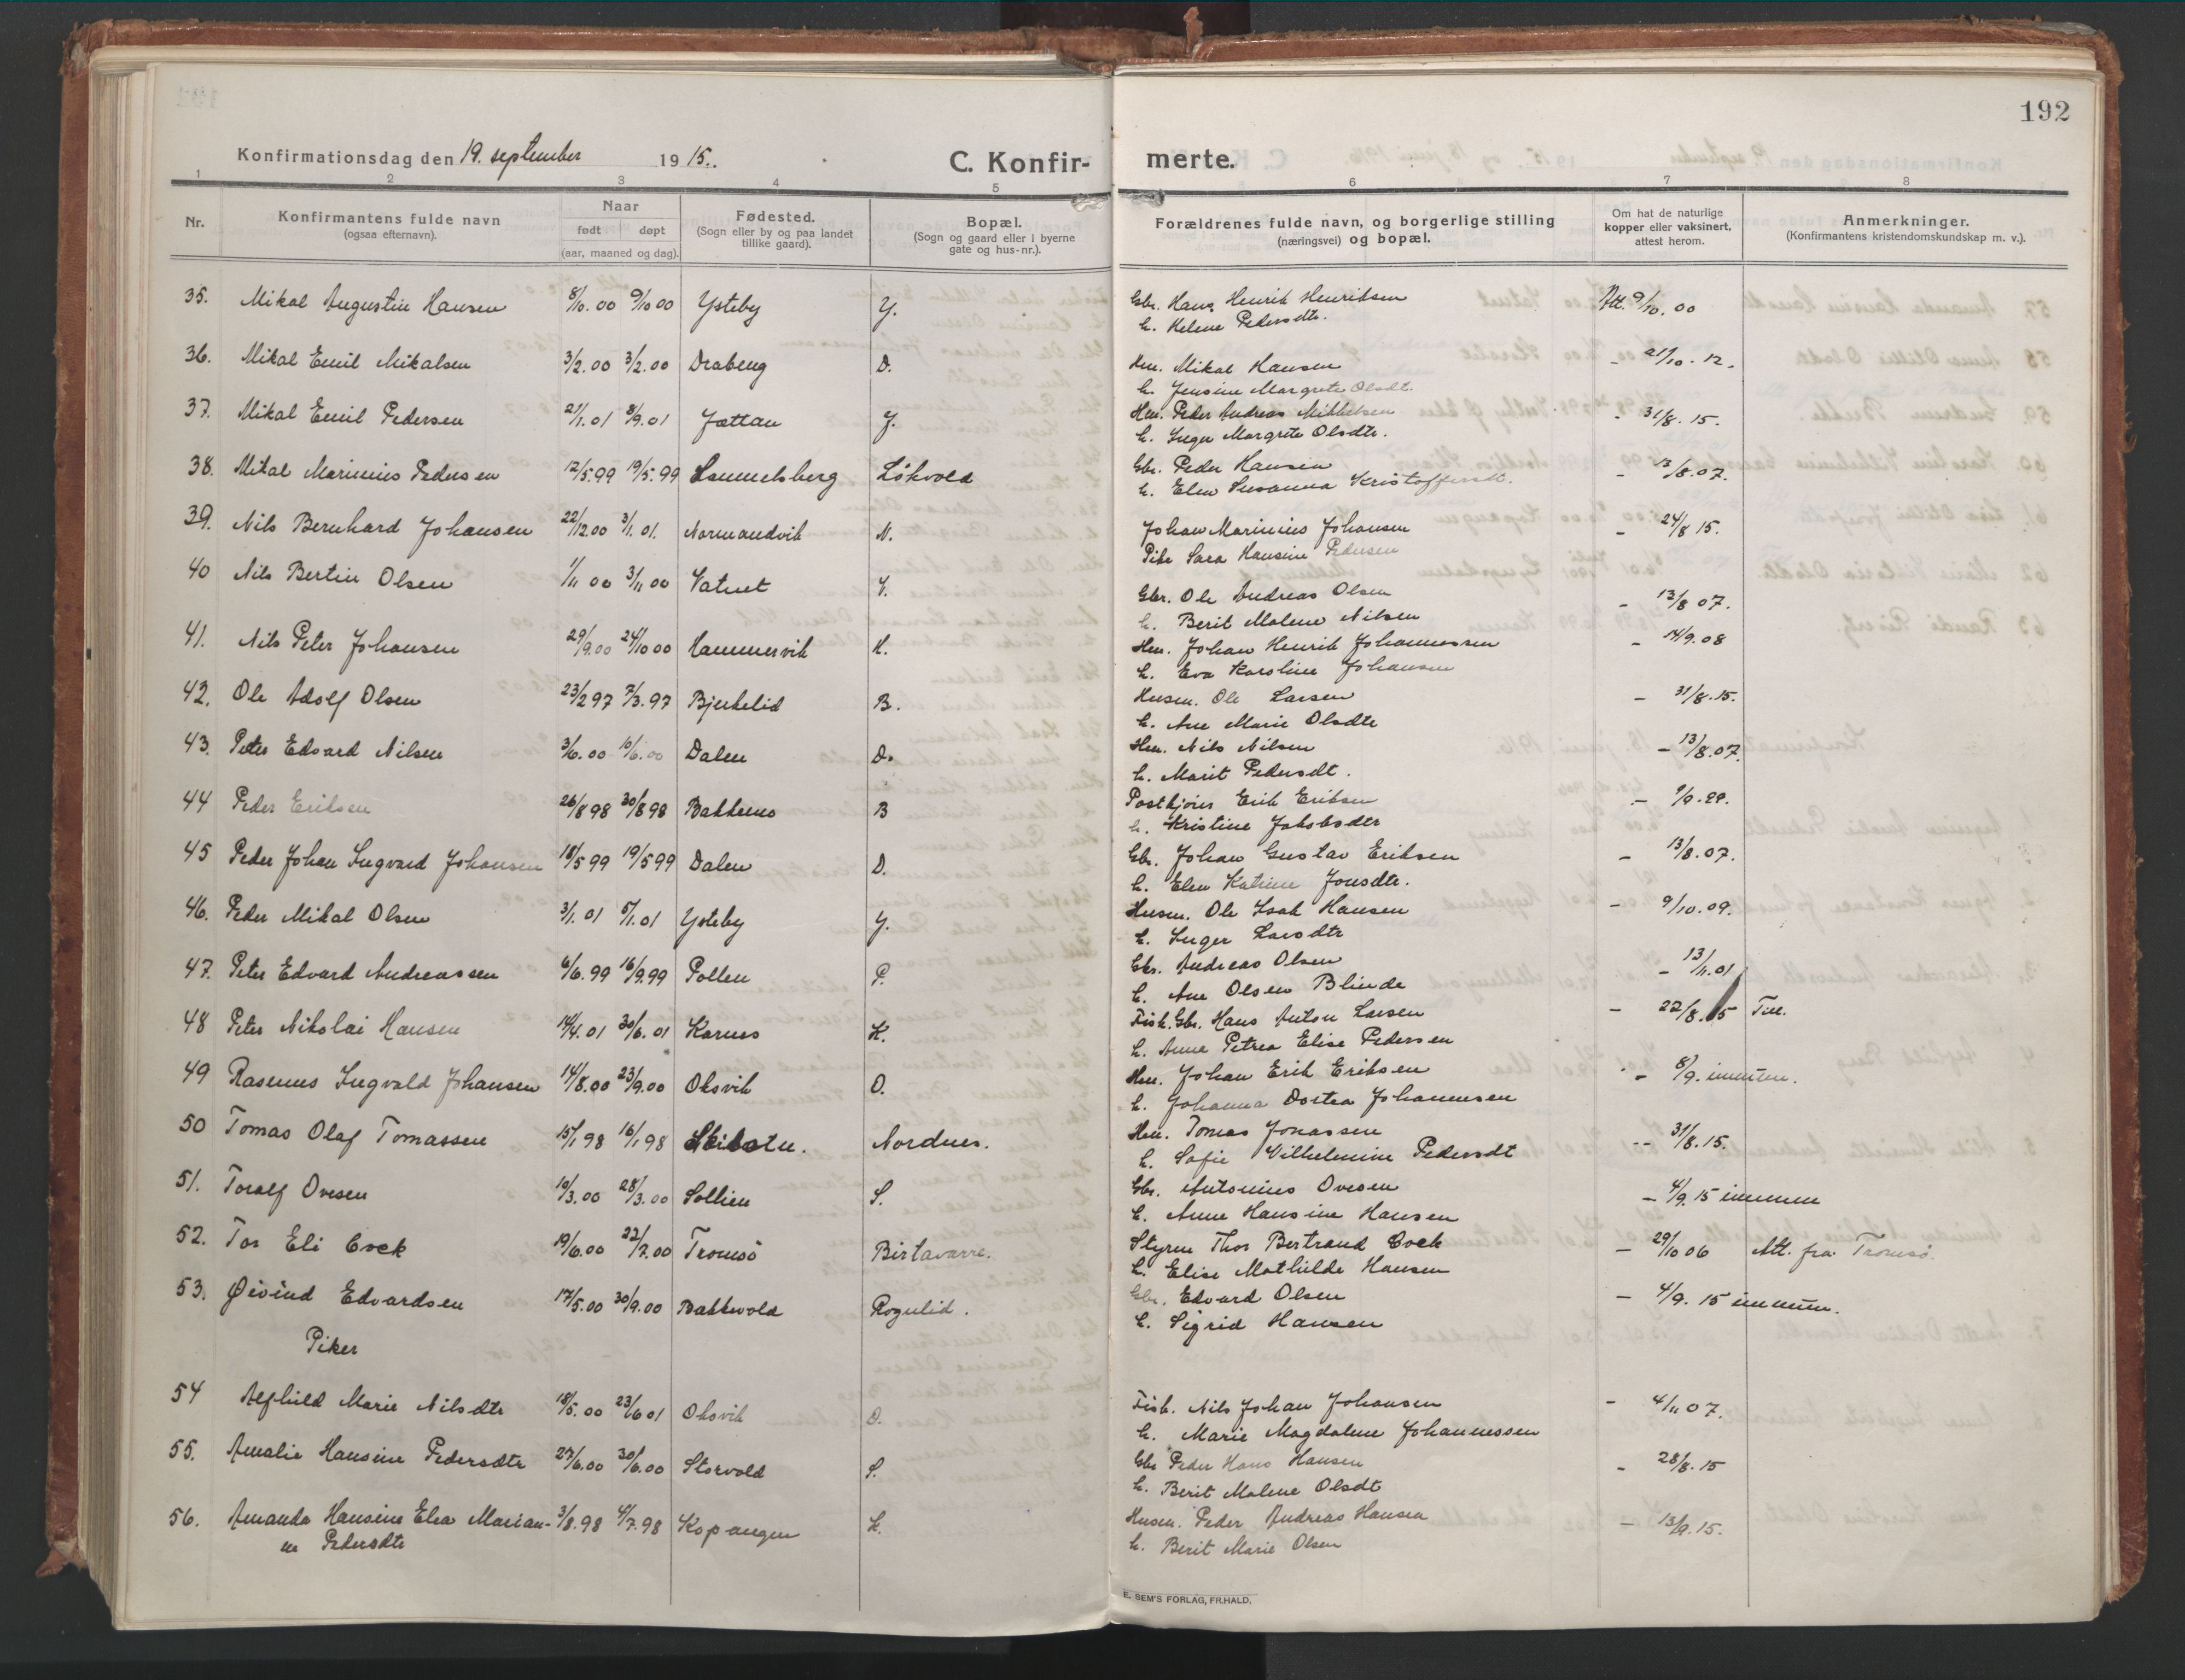 192
Konfirmationsdag den 19. september 1915.
C. Konfirmerte.
1 2 3 4 5 6 7 8
Nr. | Konfirmantens fulde navn (ogsaa efternavn). | Naar født døpt (aar, maaned og dag). | Fødested. (Sogn eller by og paa landet tillike gaard). | Bopæl. (Sogn og gaard eller i byerne gate og hus-nr.). | Forældrenes fulde navn, og borgerlige stilling (næringsvei) og bopæl. | Om hat de naturlige kopper eller vaksinert, attest herom. | Anmerkninger. (Konfirmantens kristendomskundskap m. v.).
35. Mikal Augustin Hansen 8/10.00 9/10 00 Ysteby Y. Gbr. Hans Henrik Henriksen Att. 9/10.00
h. Helene Pedersdtr.
36. Mikal Emil Mikalsen 3/2.00 3/2.00 Drabeng D. Hm. Mikal Hansen - 21/10.12.
h. Jensine Margrete Olsdt.
37. Mikal Emil Pedersen 21/1.01 8/9.01 Jættan J. Hm. Peder Andreas Mikkelsen - 31/8.15.
h. Inger Margrete Olsdtr.
38. Mikal Marinius Pedersen 12/5.99 19/5.99 Lammelsberg Løkvold Gbr. Peder Hansen - 13/8.07.
h. Elen Susanna Kristoffersdt.
39. Nils Bernhard Johansen 22/12.00 3/1.01. Normandvik N. Johan Marinius Johansen - 24/8 15.
Pike Sara Hansine Pedersen
40 Nils Bertin Olsen 1/11 00 3/11 00 Vatnet V. Gbr. Ole Andreas Olsen - 13/8 07.
h. Berit Malene Nilsen
41. Nils Peter Johansen 29/9.00 24/10 00 Hammervik H. Hm. Johan Henrik Johannessen - 14/9.08
h. Eva Karoline Johansen
42. Ole Adolf Olsen 23/2 97 7/3.97 Bjerkelid B. Husm. Ole Larsen - 31/8.15.
h. Ane Marie Olsdtr
43. Peter Edvard Nilsen 3/6.00 10/6.00 Dalen D. Hm. Nils Nilsen - 13/8.07.
h. Marit Pedersdt.
44 Peder Eriksen 26/8 98 30/8 98 Bakkemo B Postkjører Erik Eriksen - 9/9.99.
h. Kristine Jakobsdtr
45 Peder Johan Ingvard Johansen 10/5 99 19/5 99 Dalen D. Gbr. Johan Gustav Eriksen - 13/8.07.
h. Elen Katrine Jonsdtr.
46. Peder Mikal Olsen 3/1.01 5/1.01 Ysteby Y. Husm. Ole Isak Hansen - 9/10.09.
h. Inger Larsdtr
47. Peter Edvard Andreassen 6/6.99 16/9.99 Pollen P. Gbr. Andreas Olsen - 13/11.01
h. Ane Olsen Blinde
48 Peter Nikolai Hansen 14/4.01 30/6.01 Karnes K. Fisk. Gbr. Hans Anton Larsen - 22/8.15
h. Anna Petrea Elise Pedersen
49 Rasmus Ingvald Johansen 14/8.00 23/9.00 Oksvik O. Hm. Johan Erik Eriksen - 8/9. immun.
h. Johanna Dortea Johannesen
50 Tomas Olaf Tomassen 15/1 98 16/1 98 Skibotn. Nordnes. Hm. Tomas Jonassen - 31/8.15.
h. Sofie Vilhelmine Pedersdt
51. Toralf Ovesen 10/3.00 28/3.00 Sollien S. Gbr. Antonius Ovesen - 4/9.15 immun
h. Anne Hansine Hansen
52. Tor Eli Cock 19/6.00 22/7.00 Tromsø Birtavarre. Styrm Thor Bertrand Cock - 29/10 06 Att. fra Tromsø.
h. Elise Mathilde Hansen
53. Øivind Edvardsen 17/5.00 30/9.00 Bakkevold Rognlid. Gbr. Edvard Olsen - 4/9.15 immun.
h. Sigrid Hansen
Piker
54 Alfhild Marie Nilsdtr 18/5.00 23/6 01 Oksvik O. Fisk. Nils Johan Johansen - 4/11 07.
h. Marie Magdalene Johannessen
55. Amalie Hansine Pedersdtr 27/6.00 30/6.00 Storvold S. Gbr Peder Hans Hansen - 28/8.15
h. Berit Malene Olsdt
56. Amanda Hansine Elea Marian- 3/8.98 4/7.98 Kopangen K. Husm. Peder Andreas Hansen - 13/9.15.
ne Pedersdtr h. Berit Marie Olsen
E. SEM'S FORLAG, FR.HALD.